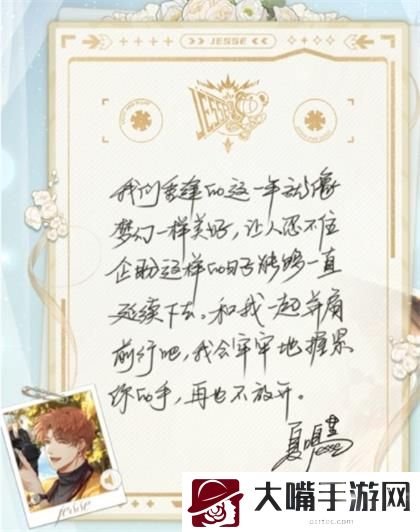 JESSE
JESSE
我们重逢的这一年就像
梦幻一样美好，让人忍不住
企盼这样的日子能够一直
延续下去。和我一起并肩
前行吧，我会牢牢地握紧
你的手，再也不放开。
夏鸣星
Jesse
Jesse
大嘴手游网